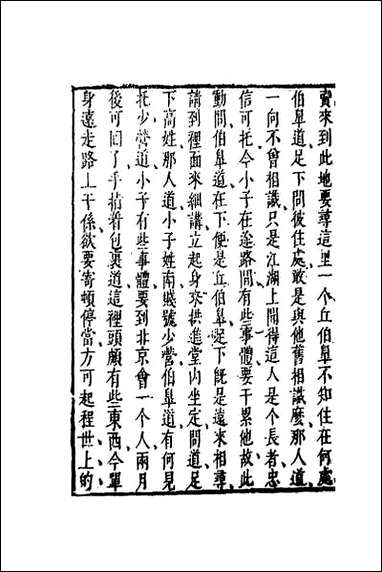 賣來到此地要尋這里一个丘伯皐不知住在何處
伯皐道足下問彼住處敢是與他舊相識麽那人道
一向不曾相識只是江湖上聞得這人是个長者忠
信可托今小子在途路間有些事體要干累他故此
動問伯皐道在下便是丘伯皐足下旣是遠來相尋
請到裡面來細講立起身來拱進堂内坐定問道足
下高姓那人道小子姓南賤號少營伯皐道有何見
托少營道小子有些事體要到北京會一个人兩月
後可囘了手指着包裹道這裡頭頗有些東西今單
身遠走路上干係欲要寄頓停當方可起程世上的